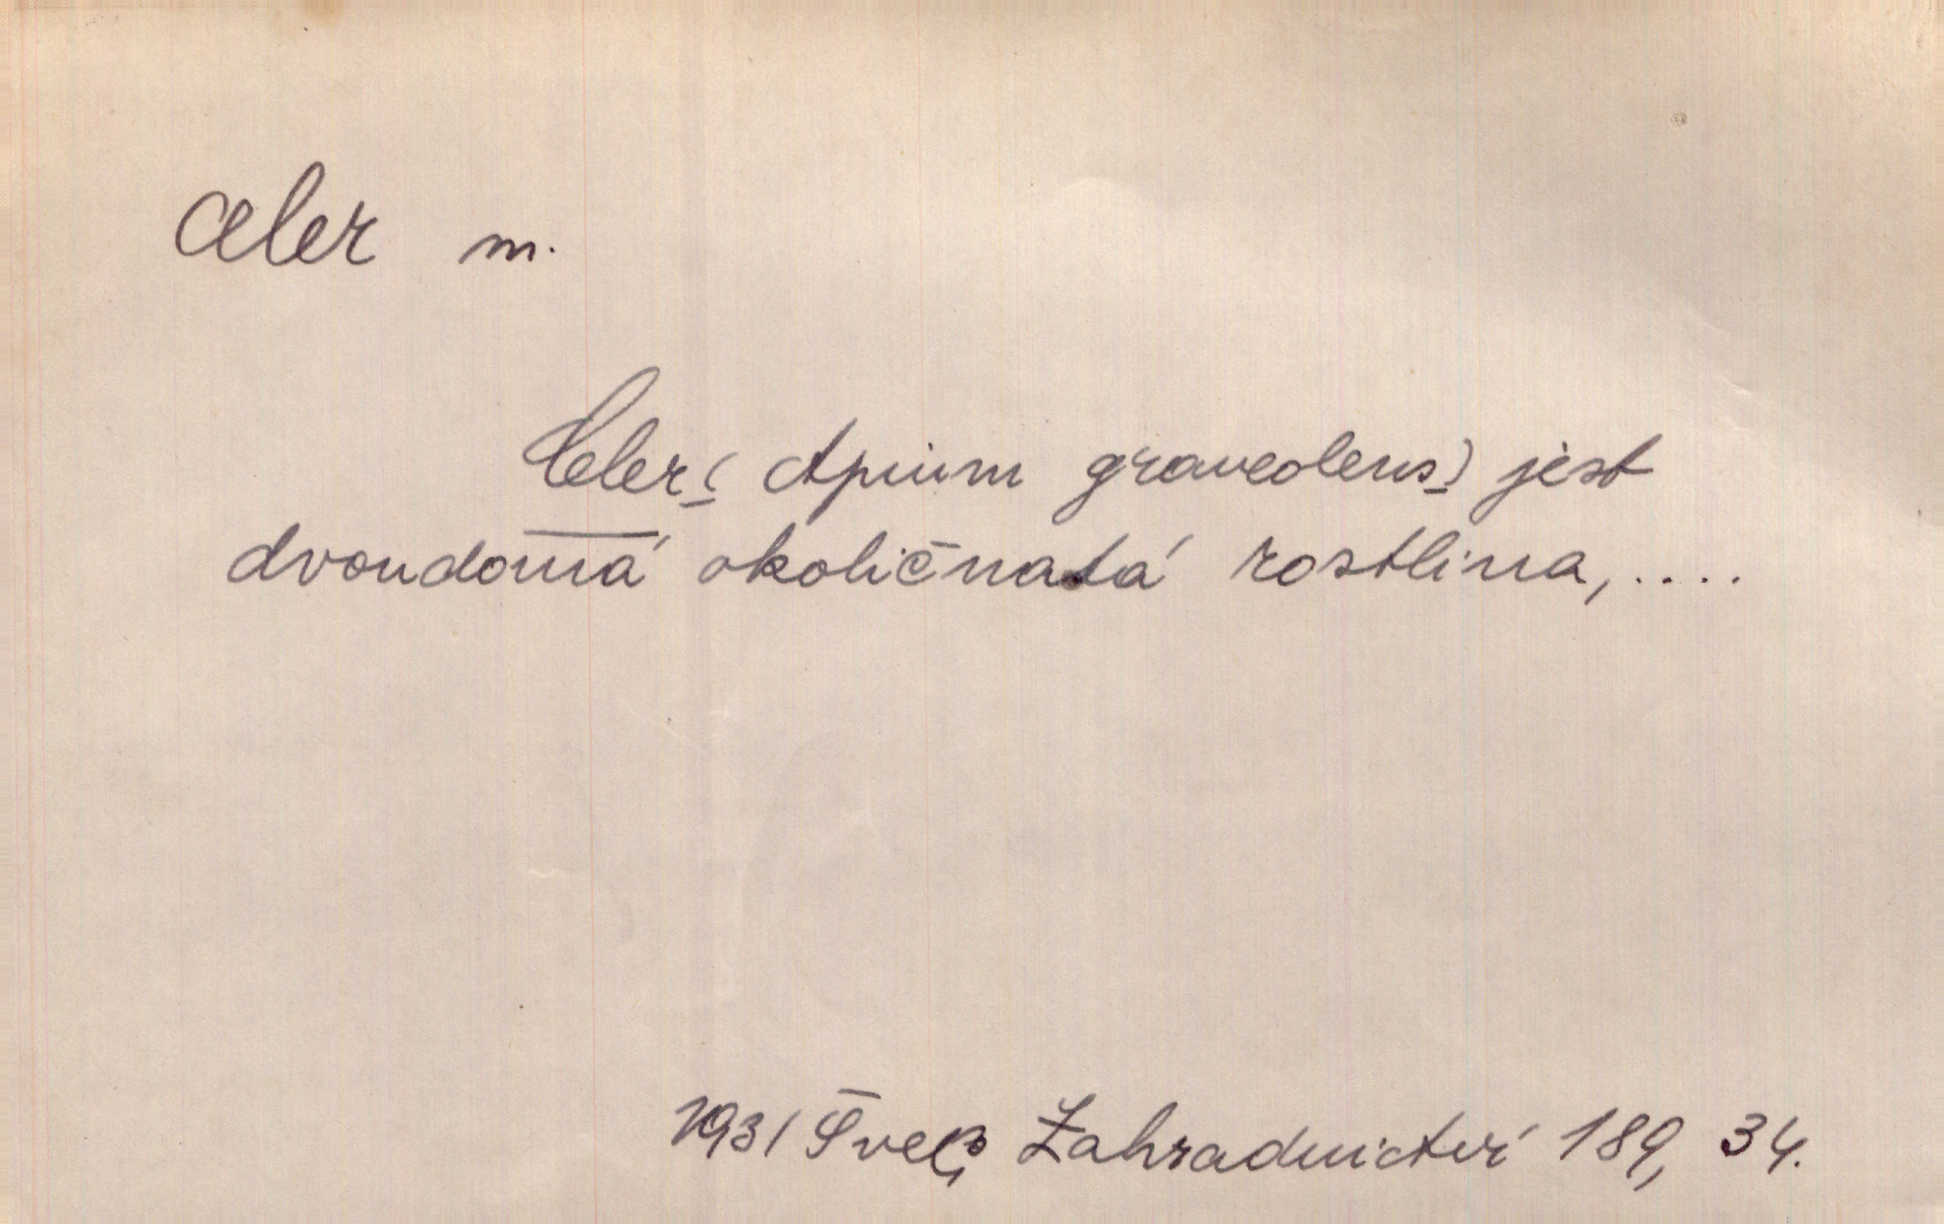 celer m.
Celer (Apium graveolens) jest
dvoudomá okoličnatá rostlina, ....
1931 Švec, Zahradnictví 189, 34.